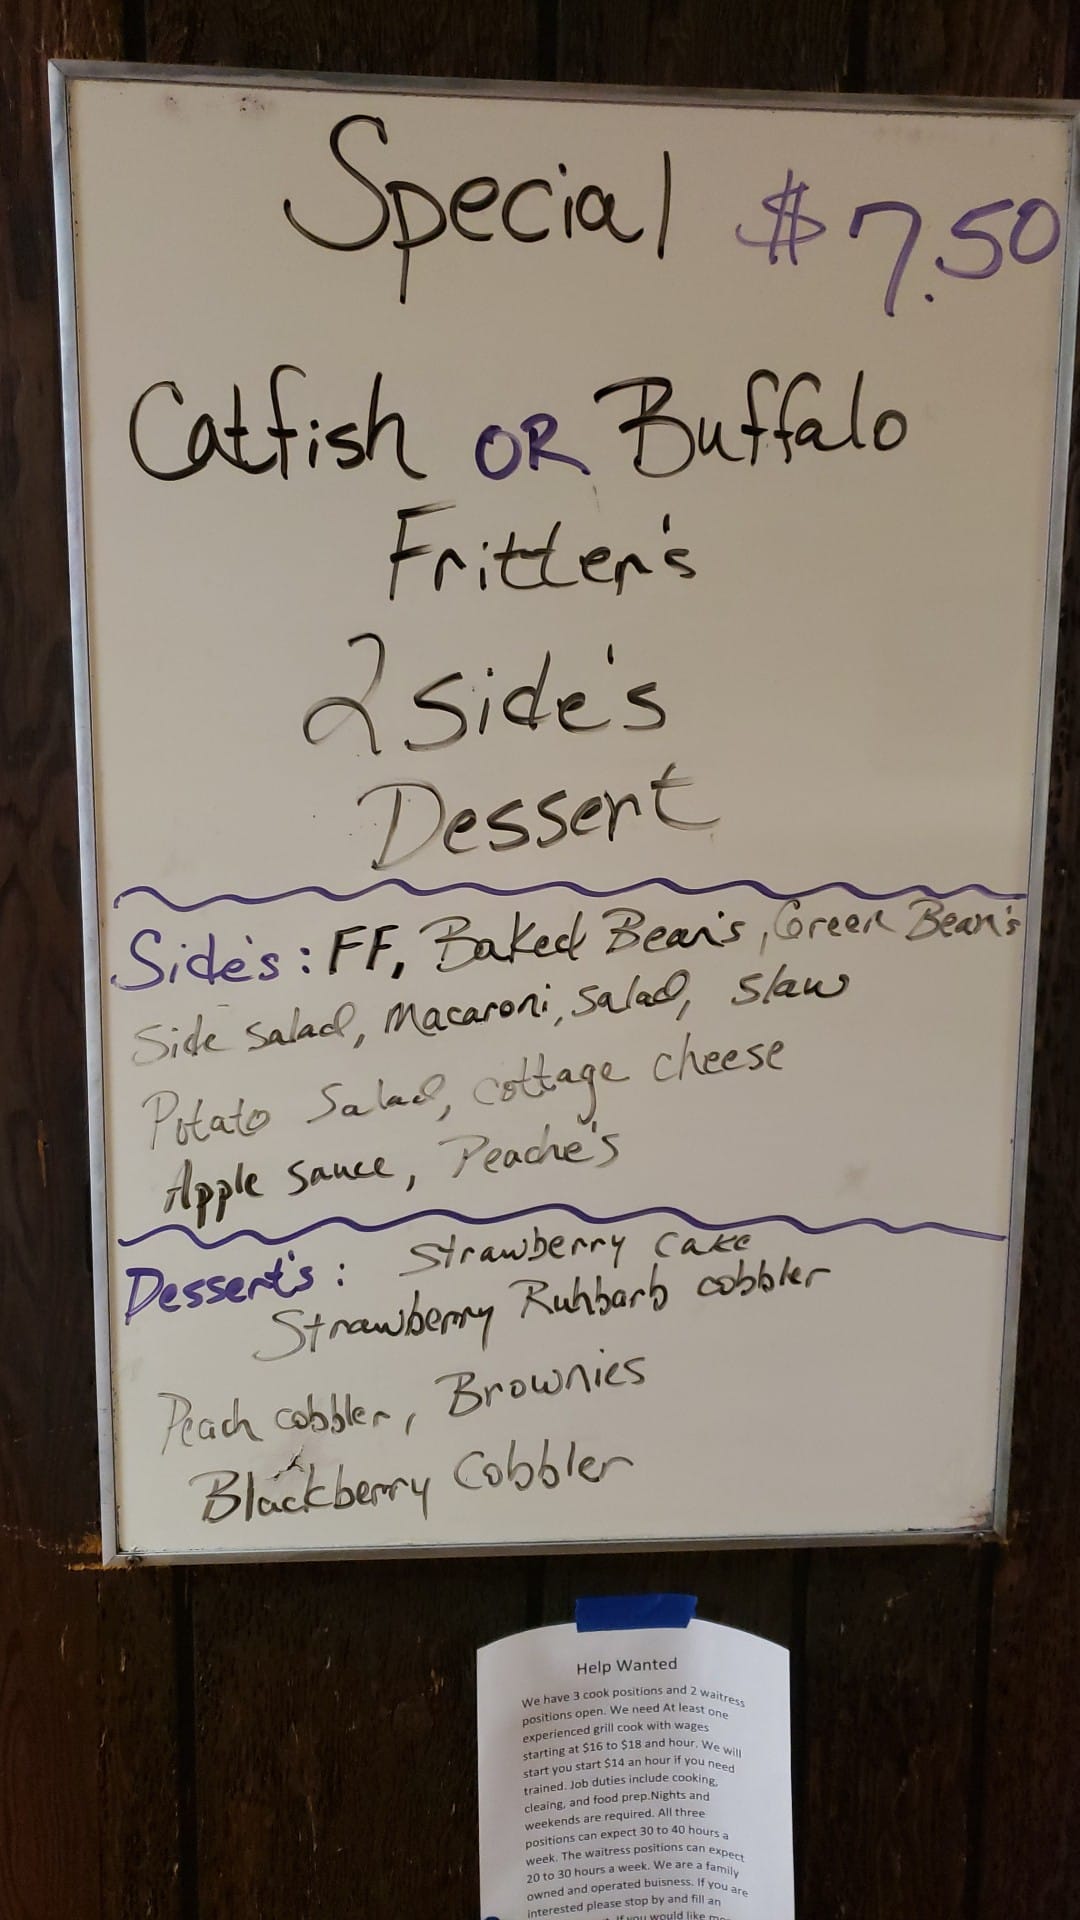 Special $7.50
Catfish OR Buffalo
Fritter's
2 Side's
Dessert
Side's: FF, Baked Bean's, Green Bean's
Side salad, Macaroni, Salad, Slaw
Potato Salad, cottage cheese
Apple sauce, Peache's
Dessert's: Strawberry Cake
Strawberry Ruhbarb cobbler
Peach cobbler, Brownies
Blackberry Cobbler
Help Wanted
We have 3 cook positions and 2 waitress
positions open. We need At least one
experienced grill cook with wages
starting at $16 to $18 and hour. We will
start you start $14 an hour if you need
trained. Job duties include cooking,
cleaing, and food prep.Nights and
weekends are required. All three
positions can expect 30 to 40 hours a
week. The waitress positions can expect
20 to 30 hours a week. We are a family
owned and operated buisness. If you are
interested please stop by and fill an
If you would like